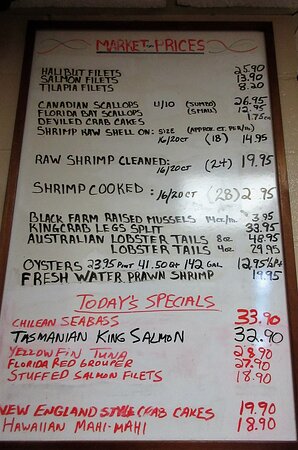 MARKET PRICES
HALIBUT FILETS 25.90
SALMON FILETS 13.90
TILAPIA FILETS 8.20
CANADIAN SCALLOPS U/10 (JUMBO) 26.95
FLORIDA BAY SCALLOPS (SMALL) 12.95
DEVILED CRAB CAKES 1.75 ea
SHRIMP RAW SHELL ON: SIZE (APPROX. CT. PER/lb.)
16/20 CT (18) 14.95
RAW SHRIMP CLEANED: 16/20 CT (24) 19.95
SHRIMP COOKED: 16/20 CT (28) 2 .95
BLACK FARM RAISED MUSSELS 3.95
KING CRAB LEGS SPLIT 33.95
AUSTRALIAN LOBSTER TAILS 8oz. 48.95
LOBSTER TAILS 4oz. 29.95
OYSTERS 23.95 PINT 41.50 QT 142 GAL 12.95
FRESH WATER PRAWN SHRIMP 19.95
TODAY'S SPECIALS
CHILEAN SEABASS 33.90
TASMANIAN KING SALMON 32.90
YELLOWFIN TUNA 28.90
FLORIDA RED GROUPER 27.90
STUFFED SALMON FILETS 18.90
NEW ENGLAND STYLE CRAB CAKES 19.90
HAWAIIAN MAHI-MAHI 18.90